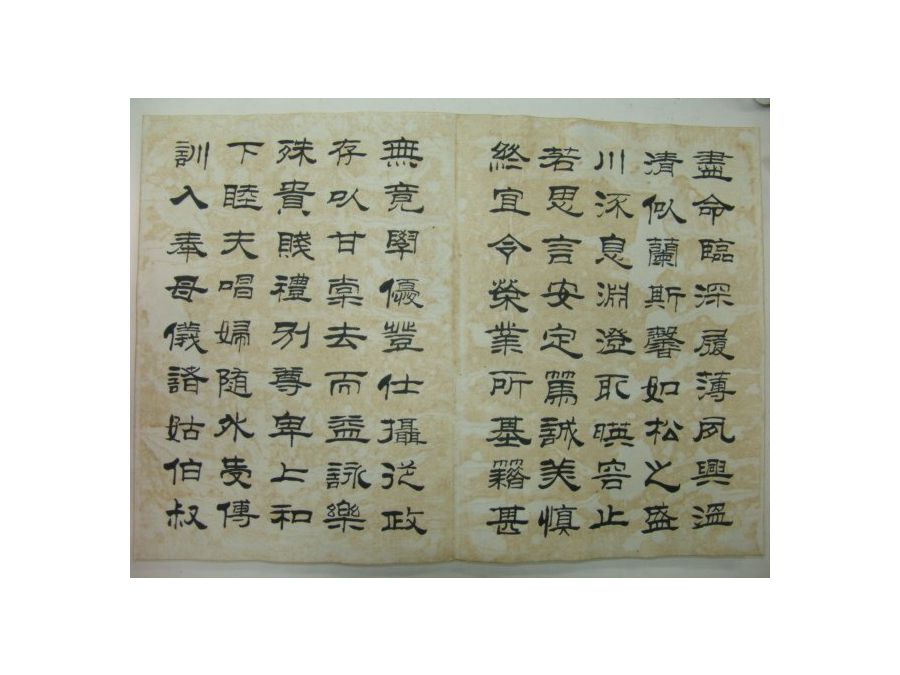 盡命臨深履薄夙興溫
凊似蘭斯馨如松之盛
川流息淵澄取暎容止
若思言安定篤誠美慎
終宜令榮業所基籍甚
無竟學優登仕攝從政
存以甘棠去而益詠樂
殊貴賤禮別尊卑上和
下睦夫唱婦隨外受傅
訓入奉母儀諸姑伯叔